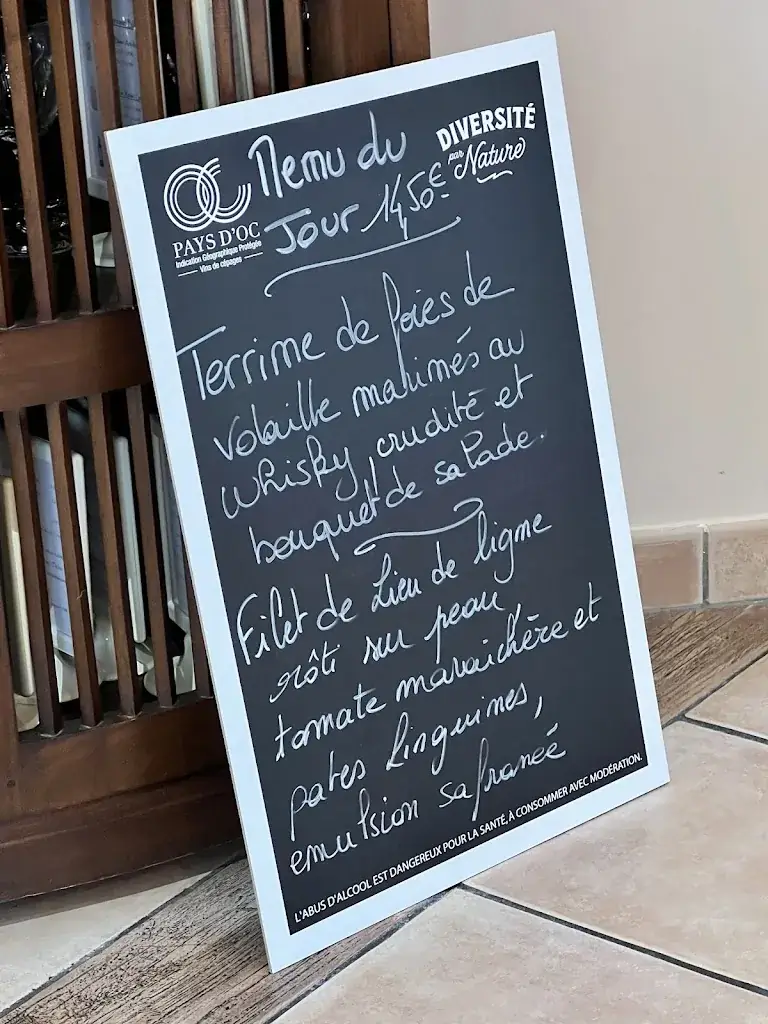 Menu du
Jour 14,50€
PAYS D'OC
Indication Géographique Protégée
Vins de cépages
DIVERSITÉ
par Nature
Terrine de foies de
volaille marinés au
whisky, crudité et
bouquet de salade.
Filet de Lieu de ligne
rôti sur peau,
tomate maraichère et
pates linguines,
emulsion safraneé
L'ABUS D'ALCOOL EST DANGEREUX POUR LA SANTÉ, À CONSOMMER AVEC MODÉRATION.